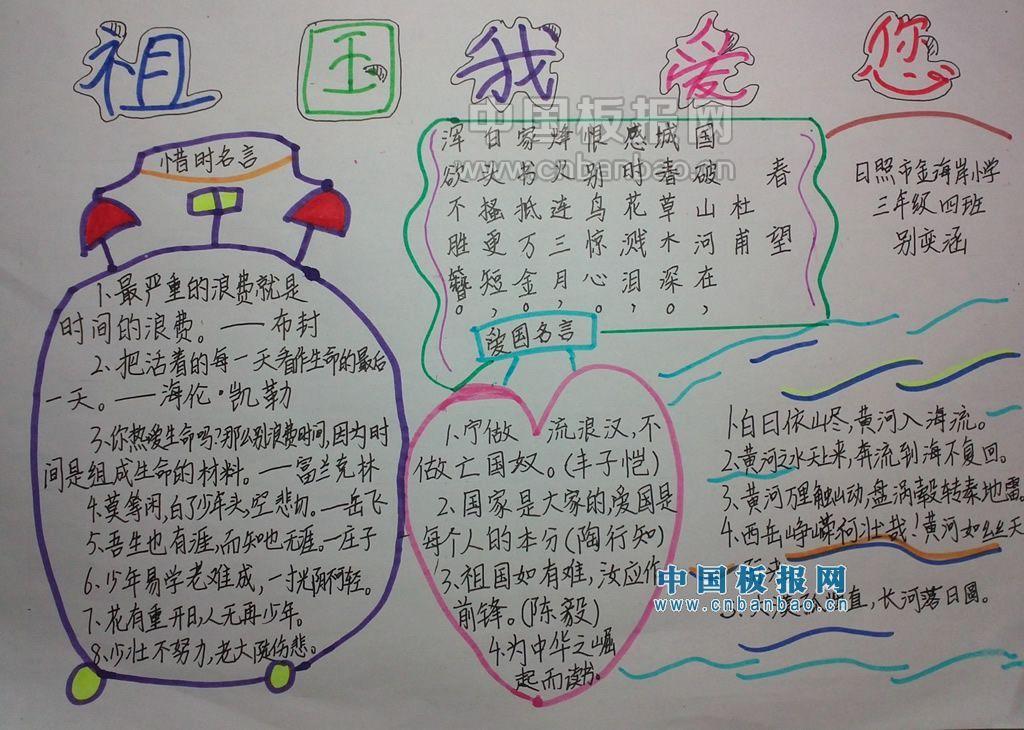 祖国我爱您
惜时名言
1、最严重的浪费就是
时间的浪费。——布封
2、把活着的每一天看作生命的最后
一天。——海伦·凯勒
3、你热爱生命吗?那么别浪费时间,因为时
间是组成生命的材料。——富兰克林
4、莫等闲,白了少年头,空悲切。—岳飞
5、吾生也有涯,而知也无涯。—庄子
6、少年易学老难成,一寸光阴不可轻。
7、花有重开日,人无再少年。
8、少壮不努力,老大徒伤悲。
春望
杜甫
国破山河在,
城春草木深。
感时花溅泪,
恨别鸟惊心。
烽火连三月,
家书抵万金。
白头搔更短,
浑欲不胜簪。
爱国名言
1、宁做 流浪汉,不
做亡国奴。(丰子恺)
2、国家是大家的,爱国是
每个人的本分(陶行知)
3、祖国如有难,汝应作
前锋。(陈毅)
4、为中华之崛
起而读书。
日照市金海岸小学
三年级四班
别奕涵
1、白日依山尽,黄河入海流。
2、黄河之水天上来,奔流到海不复回。
3、黄河万里触山动,盘涡毂转秦地雷
4、西岳峥嵘何壮哉!黄河如丝天
大漠 烟直,长河落日圆。
中国板报网
www.cnbanbao.cn
中国板报网
www.cnbanbao.cn